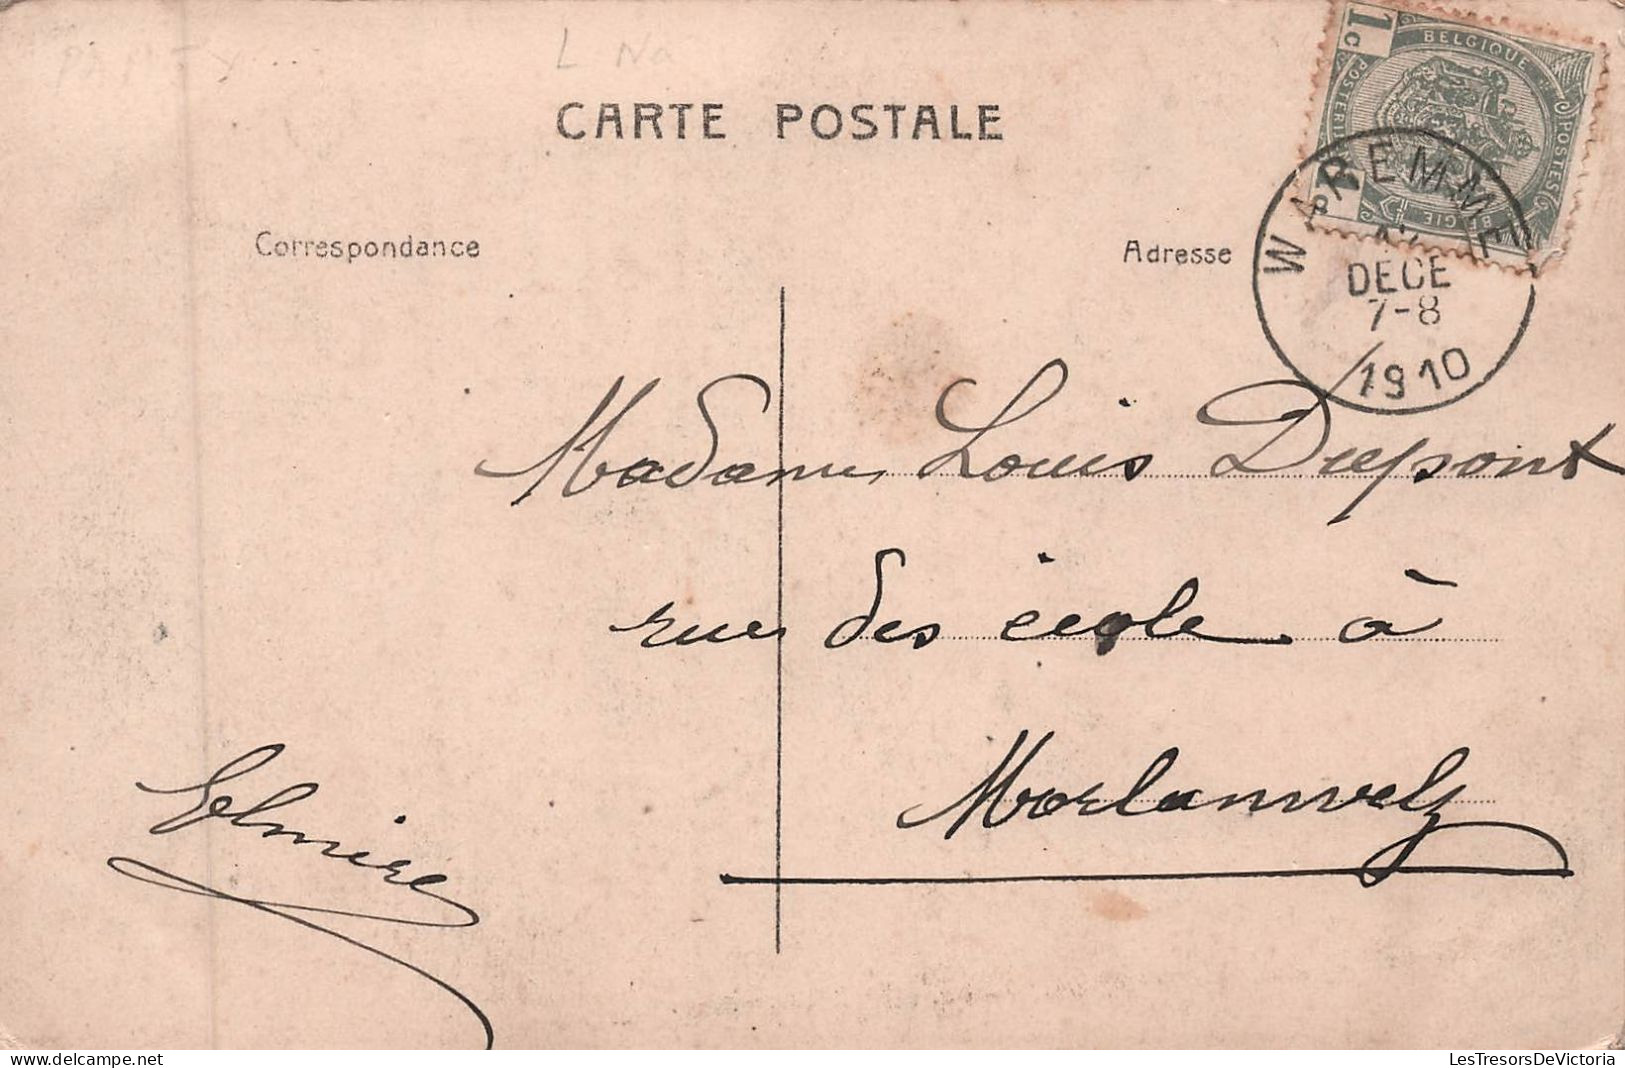 L Na
CARTE POSTALE
1 C
BELGIQUE
POSTES
BELGIE
POSTERIJ
1
WAREMME
DECE
7-8
1910
Correspondance
Adresse
Madame Louis Dupont
rue des école à
Morlanwelz
Elmire
LesTresorsDeVictoria
delcampe.net